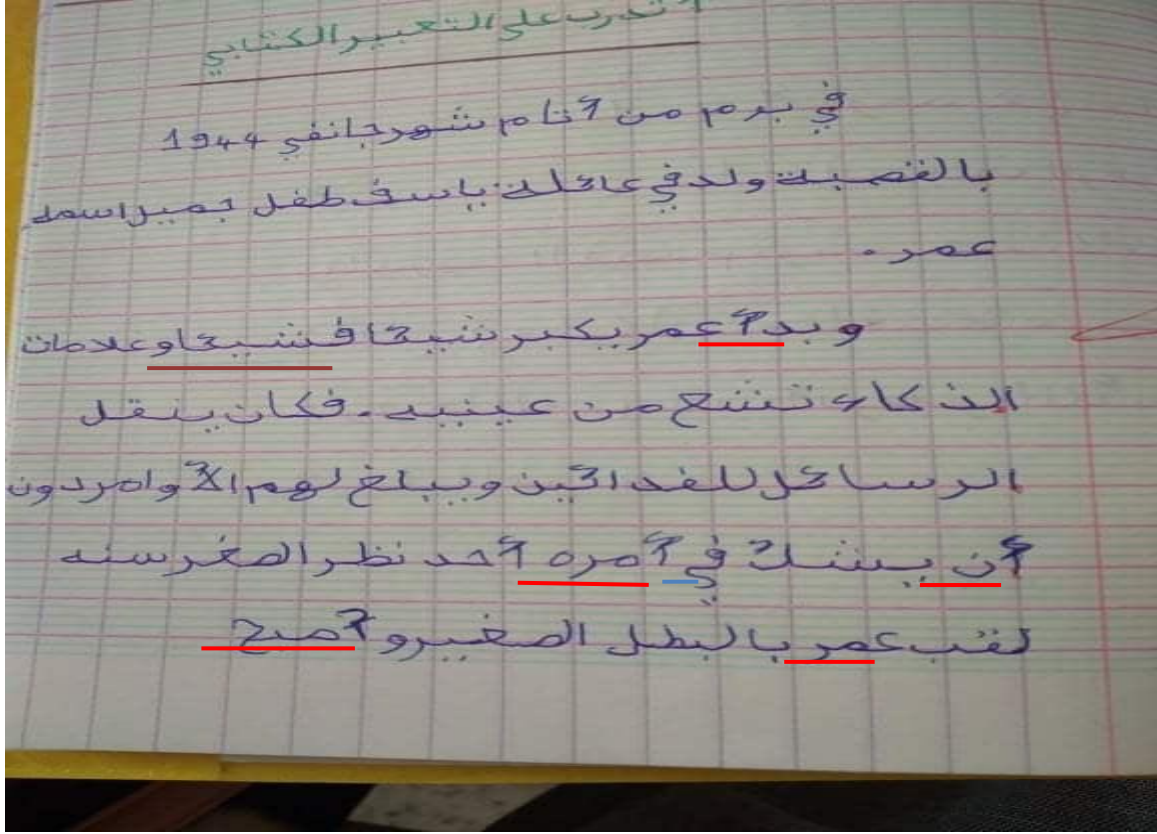 أتدرب على التعبير الكتابي
في يوم من أيام شهر جانفي 1944
بالقصبة ولد في عائلة ياسف طفل جميل اسمه
عمر.
وبدأ عمر يكبر شيئا فشيئا وعلامات
الذكاء تشع من عينيه. فكان ينقل
الرسائل للفدائيين ويبلغ لهم الأوامر دون
أن يشك في أمره أحد نظرا لصغر سنه
لقب عمر بالبطل الصغير و أصبح